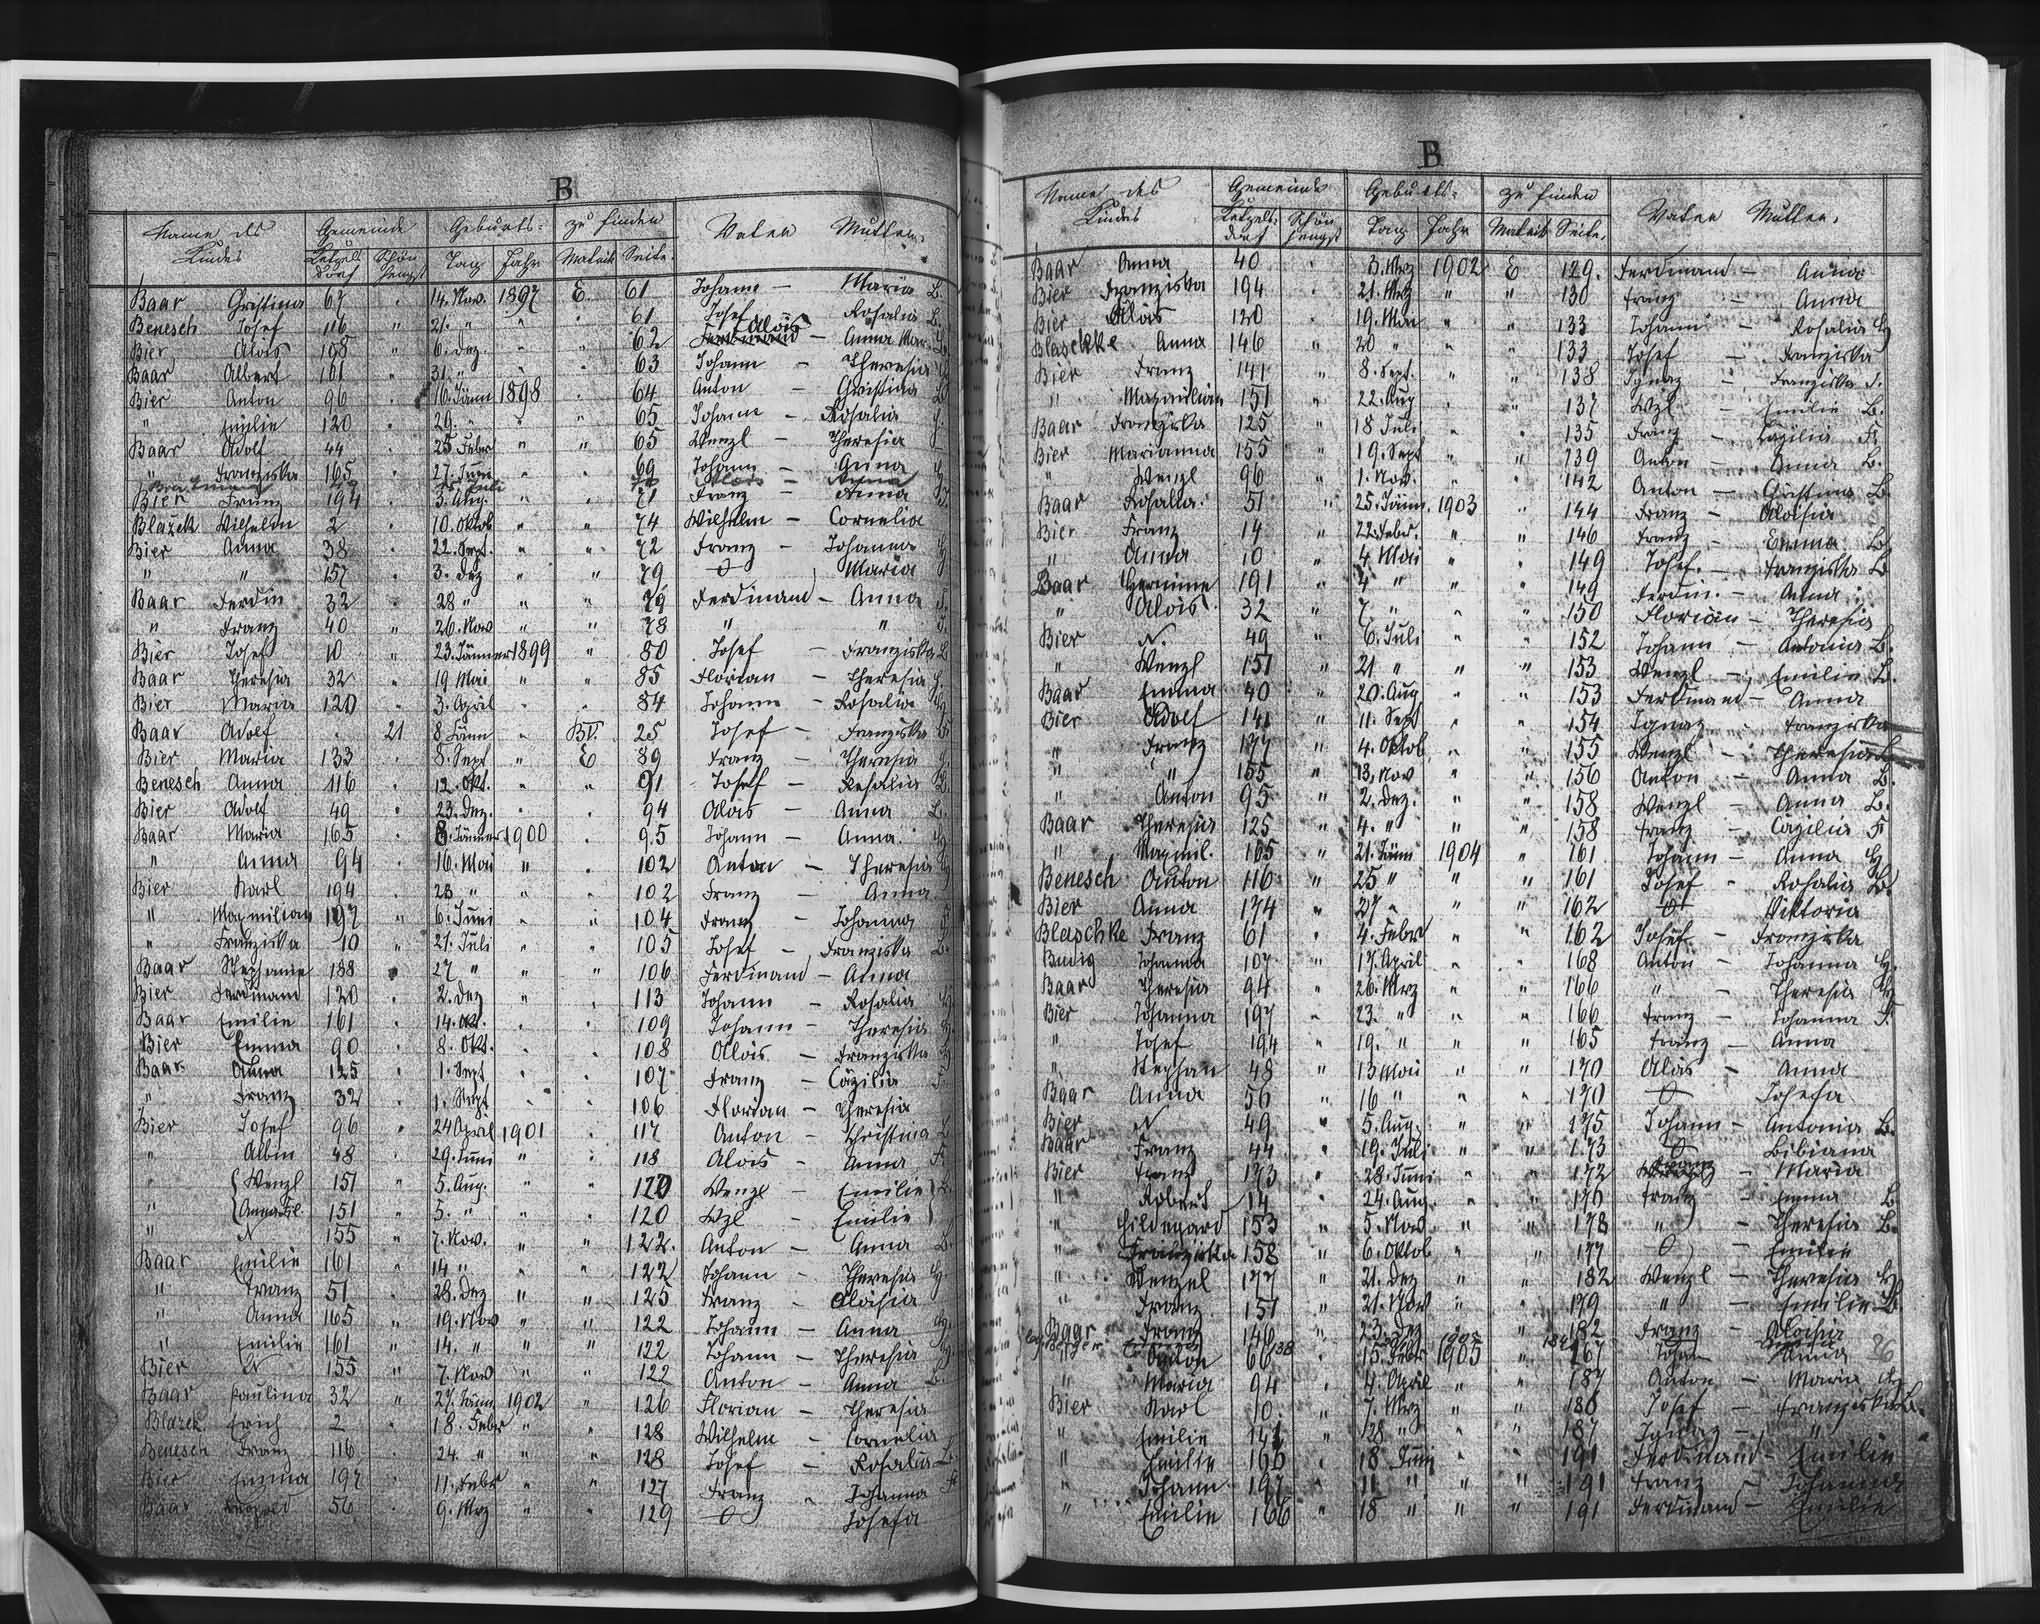 B
Name des Kindes Gemeinde Ketzelsdorf Schönhengst Geburts= Tag Jahr zu finden Matrik Seite. Vater Mutter.
Baar Christina 67 " 14. Nov. 1897 E. 61 Johann — Maria B.
Benesch Josef 116 " 21. " " " 61 Josef — Rosalia B.
Bier Alois 108 " 6. Dez. " " 62 Ferdinand Alois — Anna Mar.
Baar Albert 161 " 31. " " " 63 Johann — Theresia
Bier Anton 96 " 16. Jänn 1898 " 64 Anton — Christina B
" Emilie 120 " 29. " " " 65 Johann — Rosalia
Baar Adolf 44 " 25 Feber " " 65 Wenzl — Theresia
" Franziska 165 " 27. Juni " " 69 Johann — Anna
Juli
Bier Franz 194 " 3. Aug. " " 71 Franz — Anna
Blažek Wilhelm 2 " 10. Oktob " " 74 Wilhelm — Cornelia
Bier Anna 38 " 22. Sept. " " 72 Franz — Johanna
" " 157 " 3. Dez " " 79 O Maria
Baar Ferdin 32 " 28 " " " 79 Ferdinand — Anna
" Franz 40 " 26. Nov " " 78 " "
Bier Josef 10 " 23. Jänner 1899 " 80 Josef — Franziska B
Baar Theresia 32 " 19 Mai " " 85 Florian — Theresia
Bier Maria 120 " 3. April " " 84 Johann — Rosalia
Baar Adolf " 21 8 Jänn " BV. 25 Josef — Franziska
Bier Maria 133 " 8. Sept " E 89 Franz — Theresia
Benesch Anna 116 " 12. Okt. " " 91 Josef — Rosalia
Bier Adolf 49 " 23. Dez. " " 94 Alois — Anna B.
Baar Maria 165 " 8. Jänner 1900 " 95 Johann — Anna
" Anna 94 " 16. Mai " " 102 Anton — Theresia
Bier Karl 194 " 28 " " " 102 Franz — Anna
" Maximilian 197 " 6. Juni " " 104 Franz — Johanna
" Franziska 10 " 21. Juli " " 105 Josef — Franziska B.
Baar Stephanie 188 " 27 " " " 106 Ferdinand — Anna
Bier Ferdinand 120 " 2. Dez " " 113 Johann — Rosalia
Baar Emilie 161 " 14. Okt. " " 109 Johann — Theresia
Bier Emma 90 " 8. Okt. " " 108 Alois — Franziska
Baar Anna 125 " 1. Sept " " 107 Franz — Cäzilia
" Franz 32 " 1. Sept " " 106 Florian — Theresia
Bier Josef 96 " 24 April 1901 " 117 Anton — Christina B
" Albin 48 " 29. Juni " " 118 Alois — Anna
" Wenzl 151 " 5. Aug. " " 120 Wenzl — Emilie
" 151 " 5. " " " 120 Wzl — Emilie
" N 155 " 7. Nov. " " 122. Anton — Anna B.
Baar Emilie 161 " 14 " " " 122 Johann — Theresia
" Franz 51 " 28. Dez " " 125 Franz — Aloisia
" Anna 165 " 19. Nov " " 122 Johann — Anna
" Emilie 161 " 14. " " " 122 Johann — Theresia
Bier N 155 " 7. Nov " " 122 Anton — Anna B.
Baar Paulina 32 " 27. Jänn. 1902 " 126 Florian — Theresia
Blazek Erich 2 " 18. Febr " " 128 Wilhelm — Cornelia
Benesch Franz 116 " 24. " " " 128 Josef — Rosalia B.
Bier Emma 197 " 11. Febr " " 127 Franz " Johanna
Baar Leopold 56 " 9. Mrz " " 129 O Josefa
B
Name des Kindes Gemeinde Ketzelsdorf Schönhengst Geburts= Tag Jahr zu finden Matrik Seite. Vater Mutter.
Baar Anna 40 " 3. Mrz 1902 E 129. Ferdinand — Anna
Bier Franziska 194 " 21. Mrz " " 130 Franz — Anna
Bier Alois 120 " 19. Mai " " 133 Johann — Rosalia
Blaschke Anna 146 " 20 " " " 133 Josef — Franziska
Bier Franz 141 " 8. Sept. " " 138 Ignaz — Franziska
" Maximilian 151 " 22. Aug " " 137 Wzl — Emilie B.
Baar Franziska 125 " 18 Juli " " 135 Franz — Cäzilia
Bier Marianna 155 " 19. Sept " " 139 Anton — Anna B.
" Wenzl 96 " 1. Nov. " " 142 Anton — Christina B.
Baar Rosalia 51 " 25. Jänn. 1903 " 144 Franz — Aloisia
Bier Franz 14 " 22. Febr. " " 146 Franz — Emma B
" Anna 10 " 4. Mai " " 149 Josef — Franziska B
Baar Hermine 191 " 4 " " " 149 Ferdin. — Anna
" Alois 32 " 7 " " " 150 Florian — Theresia
Bier N. 49 " 6. Juli " " 152 Johann — Antonia B.
" Wenzl 151 " 21 " " " 153 Wenzl — Emilie B.
Baar Emma 40 " 20. Aug " " 153 Ferdinand — Anna
Bier Adolf 141 " 11. Sept " " 154 Ignaz — Franziska
" Franz 177 " 4. Oktob " " 155 Wenzl — Theresia
" " 155 " 13. Nov " " 156 Anton — Anna B.
" Anton 95 " 2. Dez. " " 158 Wenzl — Anna B.
Baar Theresia 125 " 4. " " " 158 Franz — Cäzilia
" Maxmil. 165 " 21. Jänn 1904 " 161 Johann — Anna
Benesch Anton 116 " 25 " " " 161 Josef — Rosalia B.
Bier Anna 174 " 27 " " " 162 O Viktoria
Blaschke Franz 61 " 4. Febr " " 162 Josef — Franziska
Budig Johanna 107 " 17. April " " 168 Anton — Johanna
Baar Theresia 94 " 26. Mrz " " 166 " — Theresia
Bier Johanna 197 " 23. " " " 166 Franz — Johanna
" Josef 194 " 19. " " " 165 Franz — Anna
" Stephan 48 " 13 Mai " " 170 Alois — Anna
Baar Anna 56 " 16 " " " 170 O Josefa
Bier N 49 " 5. Aug. " " 175 Johann — Antonia B.
Baar Franz 44 " 19. Juli " " 173 O Bibiana
Bier Franz 173 " 28. Juni " " 172 Franz — Maria
" Robert 14 " 24. Aug. " " 176 Franz — Emma B
" Hildegard 153 " 5. Nov " " 178 " — Theresia B.
" Franziska 158 " 6. Oktob " " 177 O Emilie
" Wenzel 177 " 21. Dez " " 182 Wenzl — Theresia
" Franz 151 " 21. Nov " " 179 " — Emilie B.
Baar Franz 146 " 23. Dez " " 182 Franz — Aloisia
" Anton 66 " 15. Febr 1905 " Anna
" Maria 94 " 4. April " " 187 Anton — Maria
Bier Karl 10 " 7. Mrz " " 186 Josef — Franziska B.
" Emilie 141 " 28 " " " 187 Ignaz — "
" Emilie 166 " 18 Juni " " 191 Ferdinand — Emilie
" Johann 197 " 11 " " " 191 Franz — Johanna
" Emilie 166 " 18 " " " 191 Ferdinand — Emilie